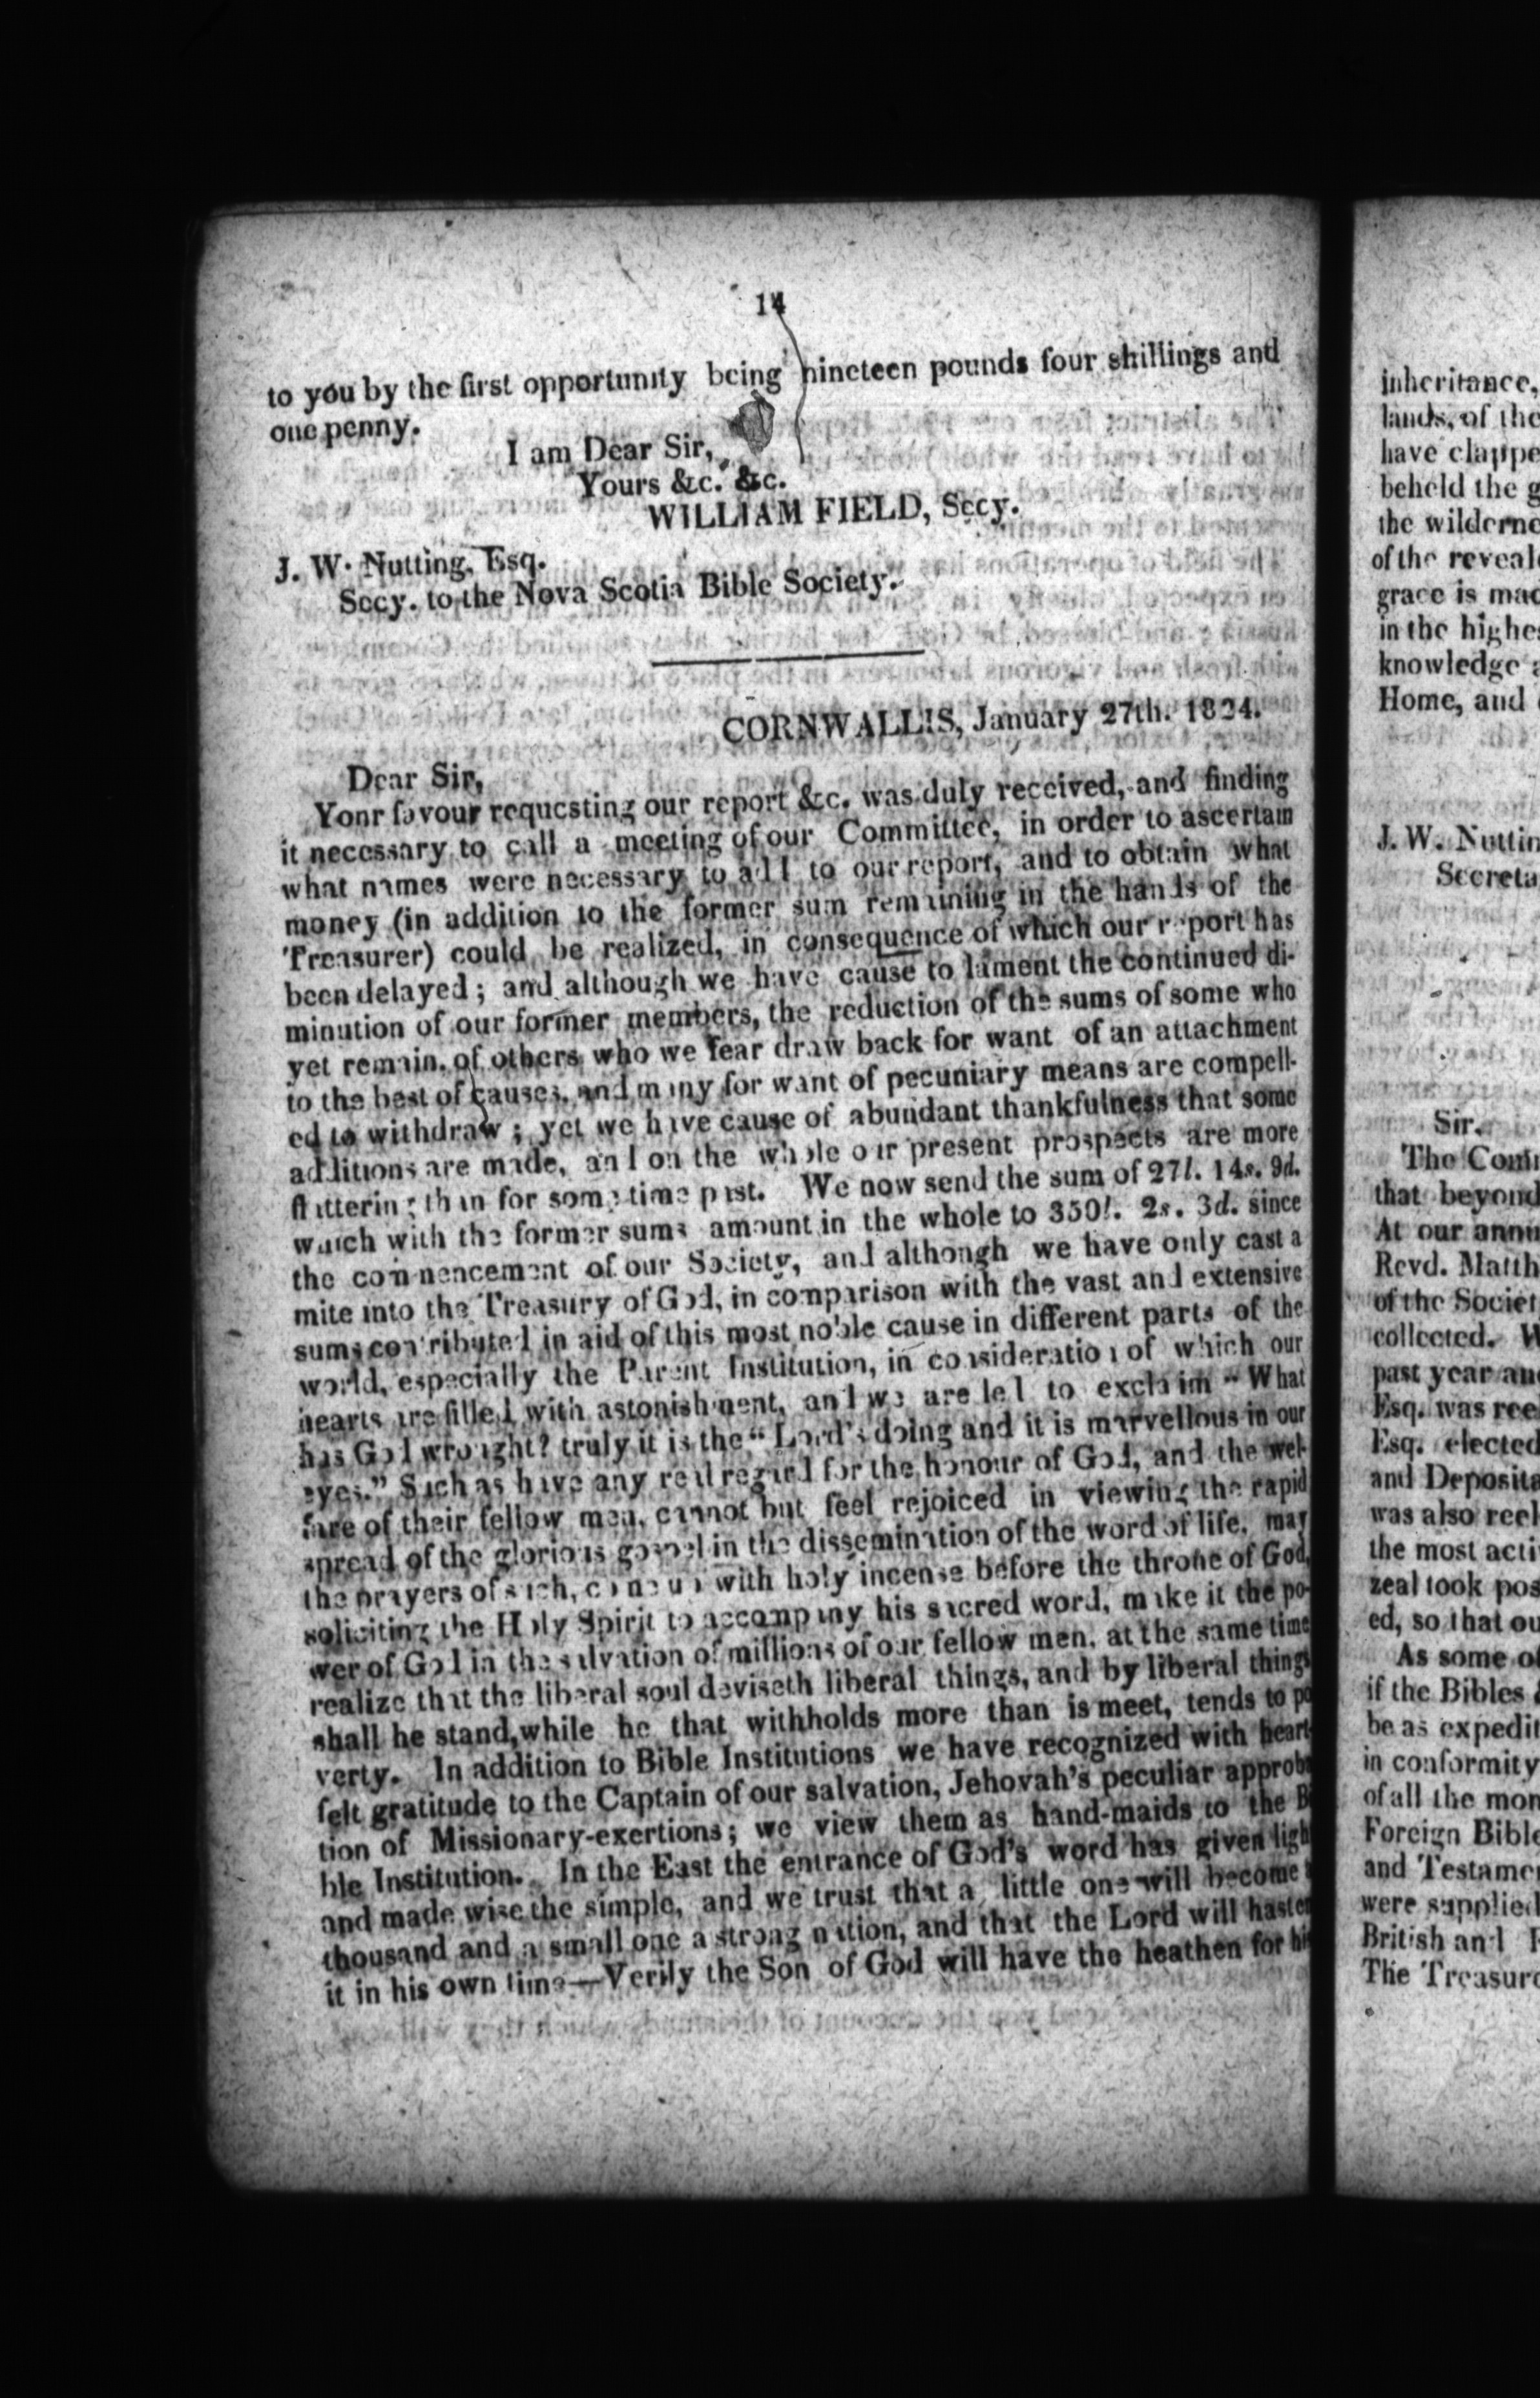 14
to you by the first opportunity being nineteen pounds four shillings and
one penny.
I am Dear Sir,
Yours &c. &c.
WILLIAM FIELD, Secy.
J. W. Nutting, Esq.
Secy. to the Nova Scotia Bible Society.
CORNWALLIS, January 27th. 1824.
Dear Sir,
Your favour requesting our report &c. was duly received, and finding
it necessary to call a meeting of our Committee, in order to ascertain
what names were necessary to add to our report, and to obtain what
money (in addition to the former sum remaining in the hands of the
Treasurer) could be realized, in consequence of which our report has
been delayed; and although we have cause to lament the continued di-
minution of our former members, the reduction of the sums of some who
yet remain, of others who we fear draw back for want of an attachment
to the best of causes, and many for want of pecuniary means are compell-
ed to withdraw; yet we have cause of abundant thankfulness that some
additions are made, and on the whole our present prospects are more
flattering than for some time past. We now send the sum of 27l. 14s. 9d.
which with the former sums amount in the whole to 350l. 2s. 3d. since
the commencement of our Society, and although we have only cast a
mite into the Treasury of God, in comparison with the vast and extensive
sums contributed in aid of this most noble cause in different parts of the
world, especially the Parent Institution, in consideration of which our
hearts are filled with astonishment, and we are led to exclaim "What
has God wrought? truly it is the "Lord's doing and it is marvellous in our
eyes." Such as have any real regard for the honour of God, and the wel-
fare of their fellow men, cannot but feel rejoiced in viewing the rapid
spread of the glorious gospel in the dissemination of the word of life, may
the prayers of such, with holy incense before the throne of God,
soliciting the Holy Spirit to accompany his sacred word, make it the po-
wer of God in the salvation of millions of our fellow men, at the same time
realize that the liberal soul deviseth liberal things, and by liberal things
shall he stand, while he that withholds more than is meet, tends to po
verty. In addition to Bible Institutions we have recognized with heart-
felt gratitude to the Captain of our salvation, Jehovah's peculiar approba
tion of Missionary-exertions; we view them as hand-maids to the Bi
ble Institution. In the East the entrance of God's word has given ligh
and made wise the simple, and we trust that a little one will become
thousand and a small one a strong nation, and that the Lord will hasten
it in his own time—Verily the Son of God will have the heathen for his
inheritance,
lands, of the
have clappe
beheld the g
the wilderne
of the reveal
grace is mad
in the highes
knowledge a
Home, and
J. W. Nuttin
Secreta
Sir,
The Com
that beyond
At our annu
Revd. Matth
of the Societ
collected. W
past year an
Esq. was ree
Esq. elected
and Deposita
was also reel
the most acti
zeal took pos
ed, so that ou
As some of
if the Bibles
be as expedit
in conformity
of all the mon
Foreign Bible
and Testamen
were supplied
British and F
The Treasure